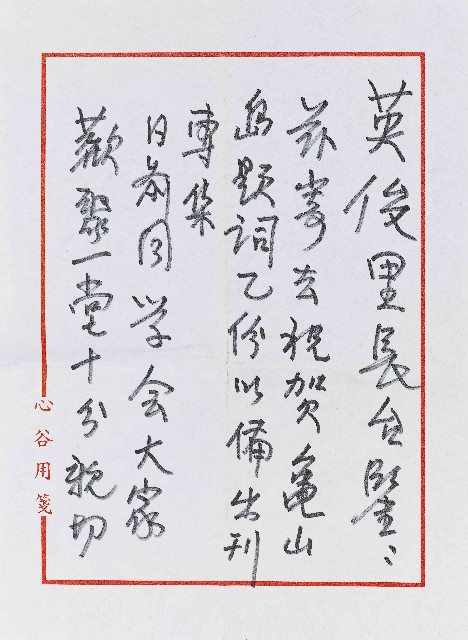 英俊里長台鑒:
茲寄去祝賀龜山
島題詞乙份以備出刊
專集
日前同学会大家
歡聚一堂十分親切
心谷用箋